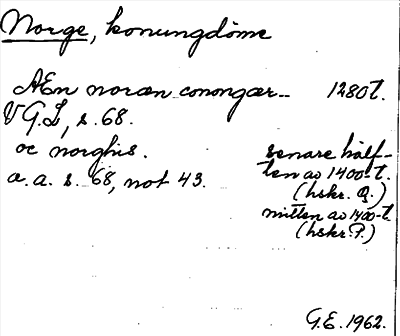 Norge, konungdöme
AEn noræn conongær-- 1280 t.
VGL, s. 68.
oc norghis. senare hälf-
a.a. s. 68, not 43. ten av 1400-t.
(hskr. Q.)
mitten av 1400-t.
(hskr. P.)
G.E. 1962.